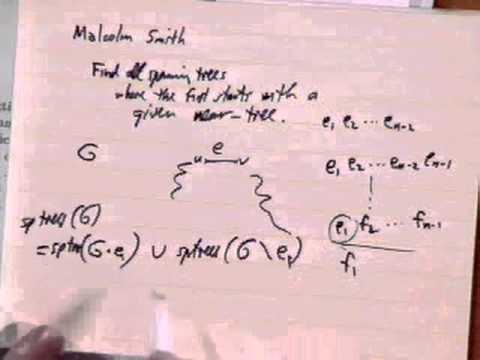 Malcolm Smith
Find all spanning trees
where the first starts with a
given near-tree.
e₁ e₂ ... eₙ₋₂
G
e
e₁ e₂ ... eₙ₋₂ eₙ₋₁
e₁ f₂ ... fₙ₋₁
f₁
sptrees(G)
= sptrees(G·e₁) ∪ sptrees(G \ e₁)